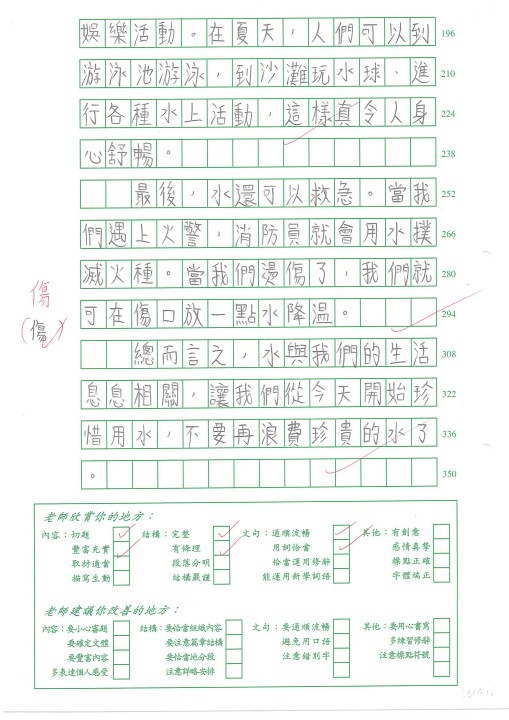 娛樂活動。在夏天，人們可以到 196
游泳池游泳，到沙灘玩水球、進 210
行各種水上活動，這樣真令人身 224
心舒暢。 238
最後，水還可以救急。當我 252
們遇上火警，消防員就會用水撲 266
滅火種。當我們燙傷了，我們就 280
傷
可在傷口放一點水降溫。 294
(傷)
總而言之，水與我們的生活 308
息息相關，讓我們從今天開始珍 322
惜用水，不要再浪費珍貴的水了 336
。 350
老師欣賞你的地方：
內容：切題 結構：完整 文句：通順流暢 其他：有創意
豐富充實 有條理 用詞恰當 感情真摯
取材適當 段落分明 恰當運用修辭 標點正確
描寫生動 結構嚴謹 能運用新學詞語 字體端正
老師建議你改善的地方：
內容：要小心審題 結構：要恰當組織內容 文句：要通順流暢 其他：要用心書寫
要確定文體 要注意篇章結構 避免用口語 多練習修辭
要豐富內容 要恰當地分段 注意錯別字 注意標點符號
多表達個人感受 注意詳略安排